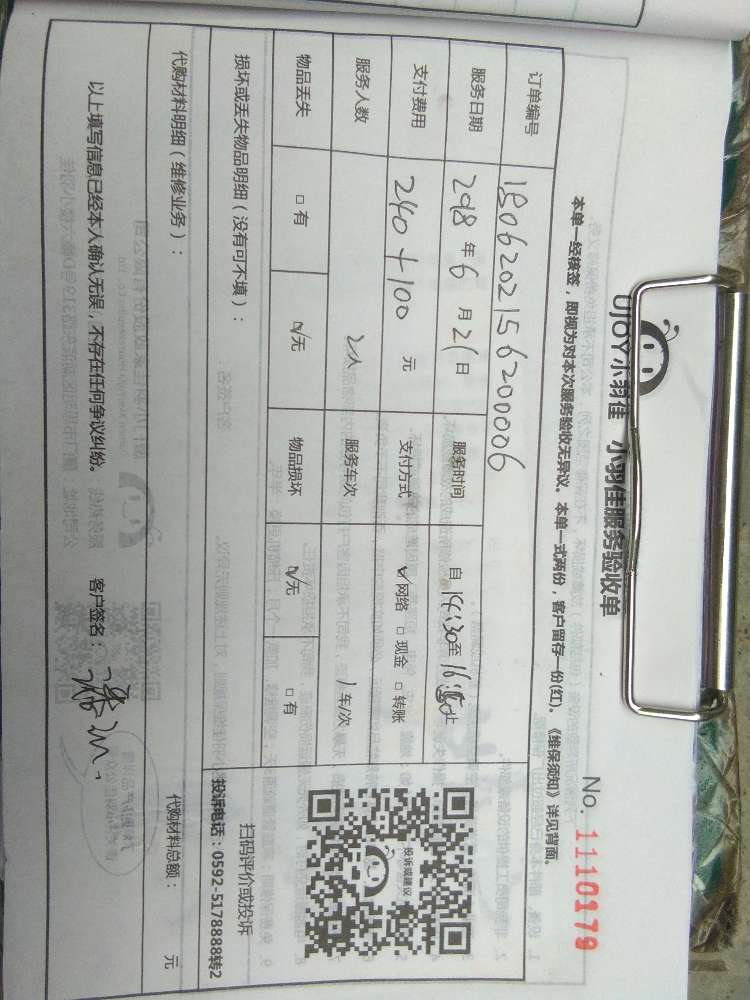 UJOY小羽佳 小羽佳服务验收单
No. 1110179
本单一经核签，即视为对本次服务验收无异议。本单一式两份，客户留存一份(红)。《维保须知》详见背面。
订单编号 18062021562000006
服务日期 2018 年 6 月 21 日 服务时间 自 14:30 至 16:50 止
支付费用 240+100 元 支付方式 ☑网络 □现金 □转账
服务人数 2人 服务车次 1 车/次
物品丢失 □有 ☑无 物品损坏 ☑无 □有
投诉或建议
扫码评价或投诉
投诉电话：0592-5178888转2
损坏或丢失物品明细（没有可不填）：
代购材料明细（维修业务）： 代购材料总额： 元
以上填写信息已经本人确认无误，不存在任何争议纠纷。 客户签名：